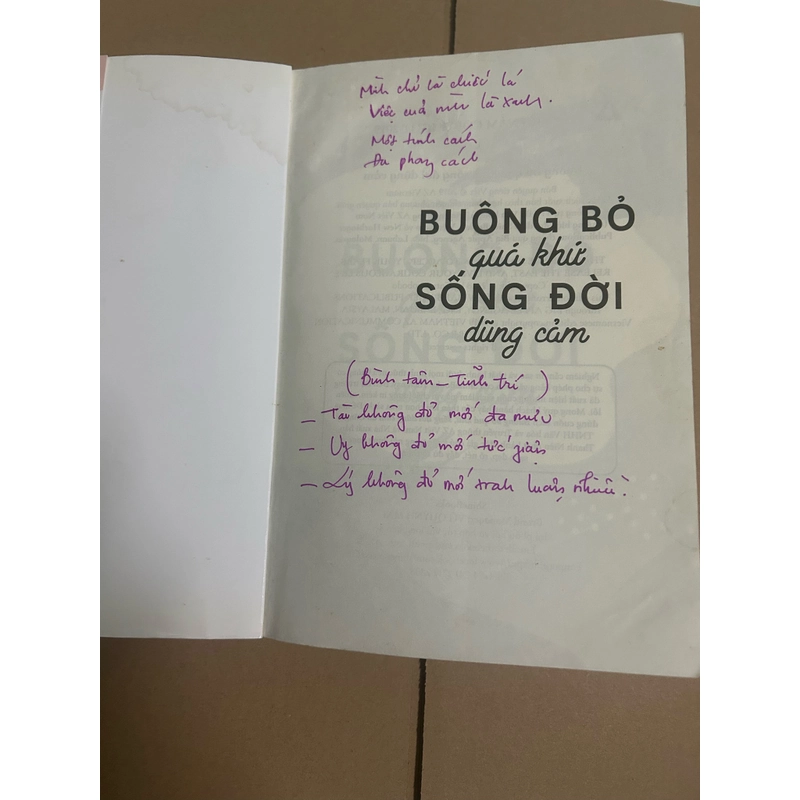 Mình chỉ là chiếc lá
Việc của mình là xanh.
Một tính cách
Đa phong cách
BUÔNG BỎ
quá khứ
SỐNG ĐỜI
dũng cảm
(Bình tâm - Tĩnh trí)
- Tài không đủ mới đa mưu
- Uy không đủ mới tức giận
- Lý không đủ mới tranh luận nhiều.